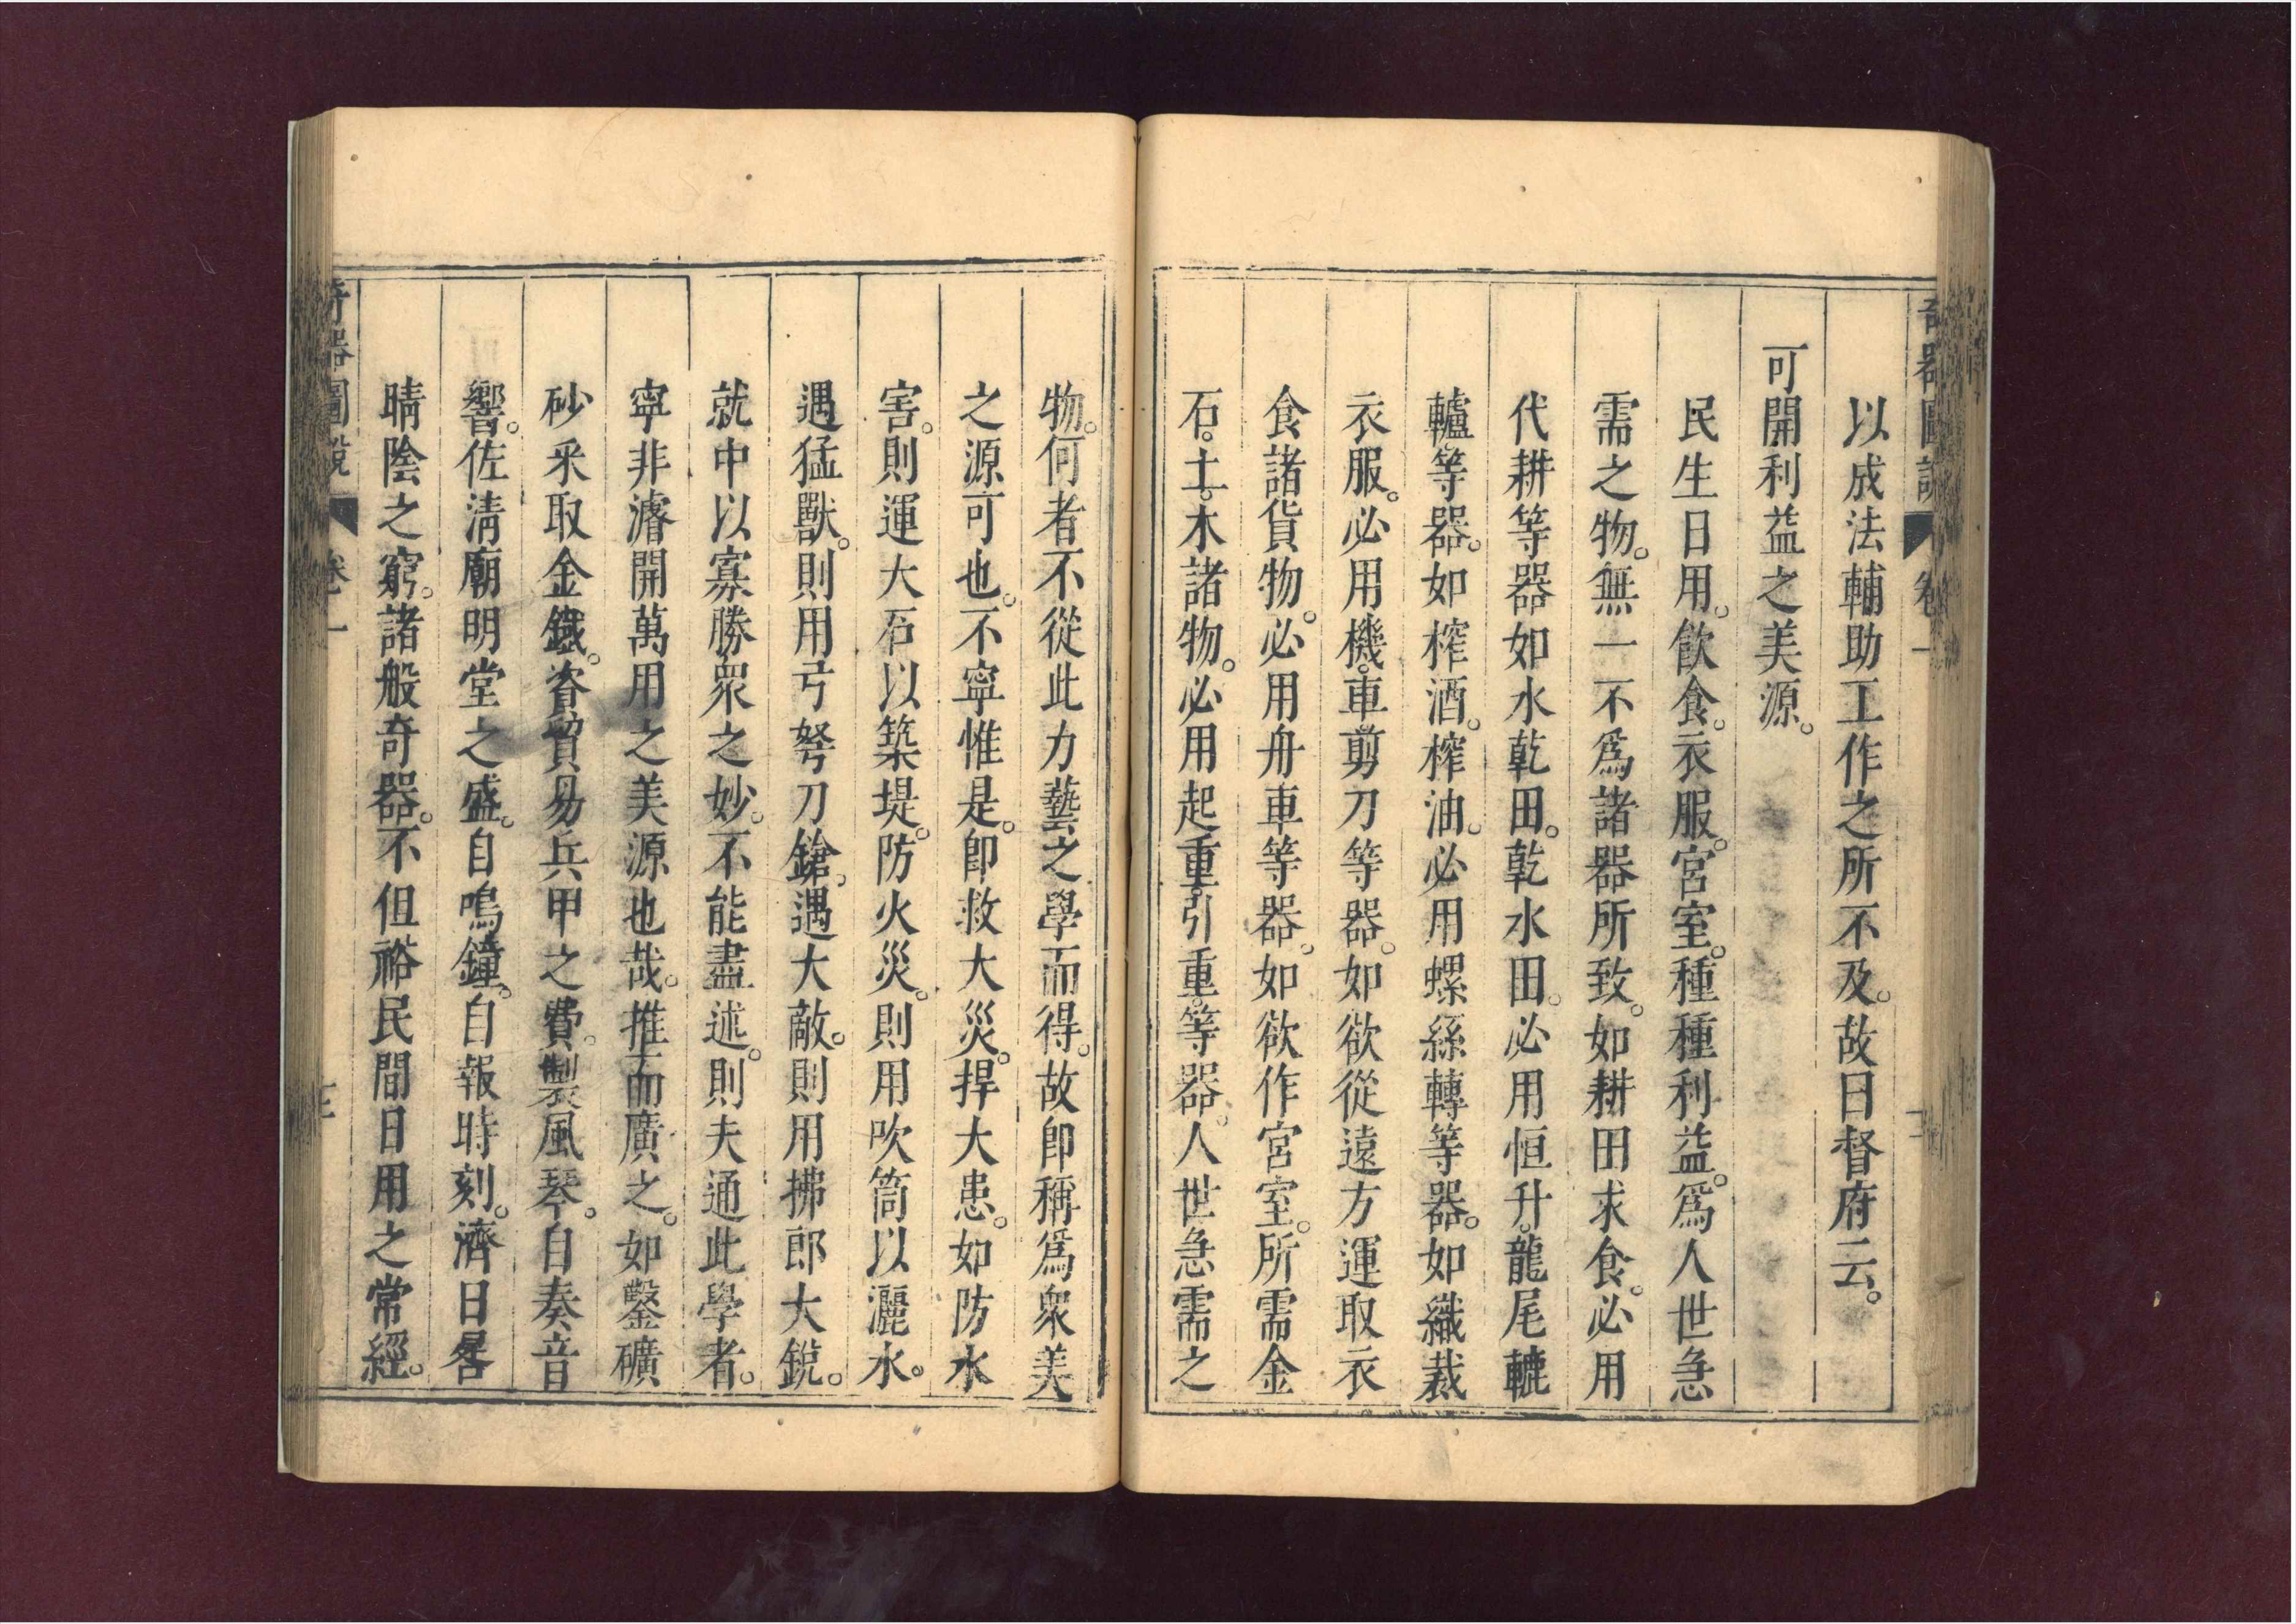 奇器圖說 卷一
以成法輔助工作之所不及。故曰督府云。
可開利益之美源。
民生日用。飲食。衣服。宮室。種種利益。爲人世急
需之物。無一不爲諸器所致。如耕田求食。必用
代耕等器如水乾田。乾水田。必用恒升。龍尾轆
轤等器。如榨酒。榨油。必用螺絲轉等器。如織裁
衣服。必用機。車剪刀等器。如欲從遠方運取衣
食諸貨物。必用舟車等器。如欲作宮室。所需金
石。土。木諸物。必用起重。引重。等器。人世急需之
物。何者不從此力藝之學而得。故卽稱爲衆美
之源可也。不寧惟是。卽救大災。捍大患。如防水
害。則運大石以築堤。防火災。則用吹筒以灑水。
遇猛獸。則用弓弩刀鎗。遇大敵。則用拂郎大銃。
就中以寡勝衆之妙。不能盡述。則夫通此學者。
寧非濬開萬用之美源也哉。推而廣之。如鑿礦
砂采取金鐵。資貿易兵甲之費。製風琴。自奏音
響。佐清廟明堂之盛。自鳴鐘。自報時刻。濟日晷
晴陰之窮。諸般奇器。不但裕民間日用之常經。
奇器圖說 卷一